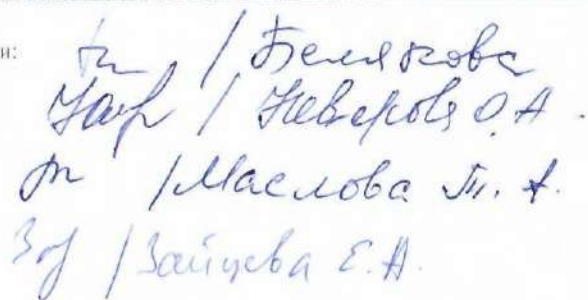 и:
/ Белякова
/ Неверова О.А.
/ Маслова Т. А.
/ Зайцева Е.А.